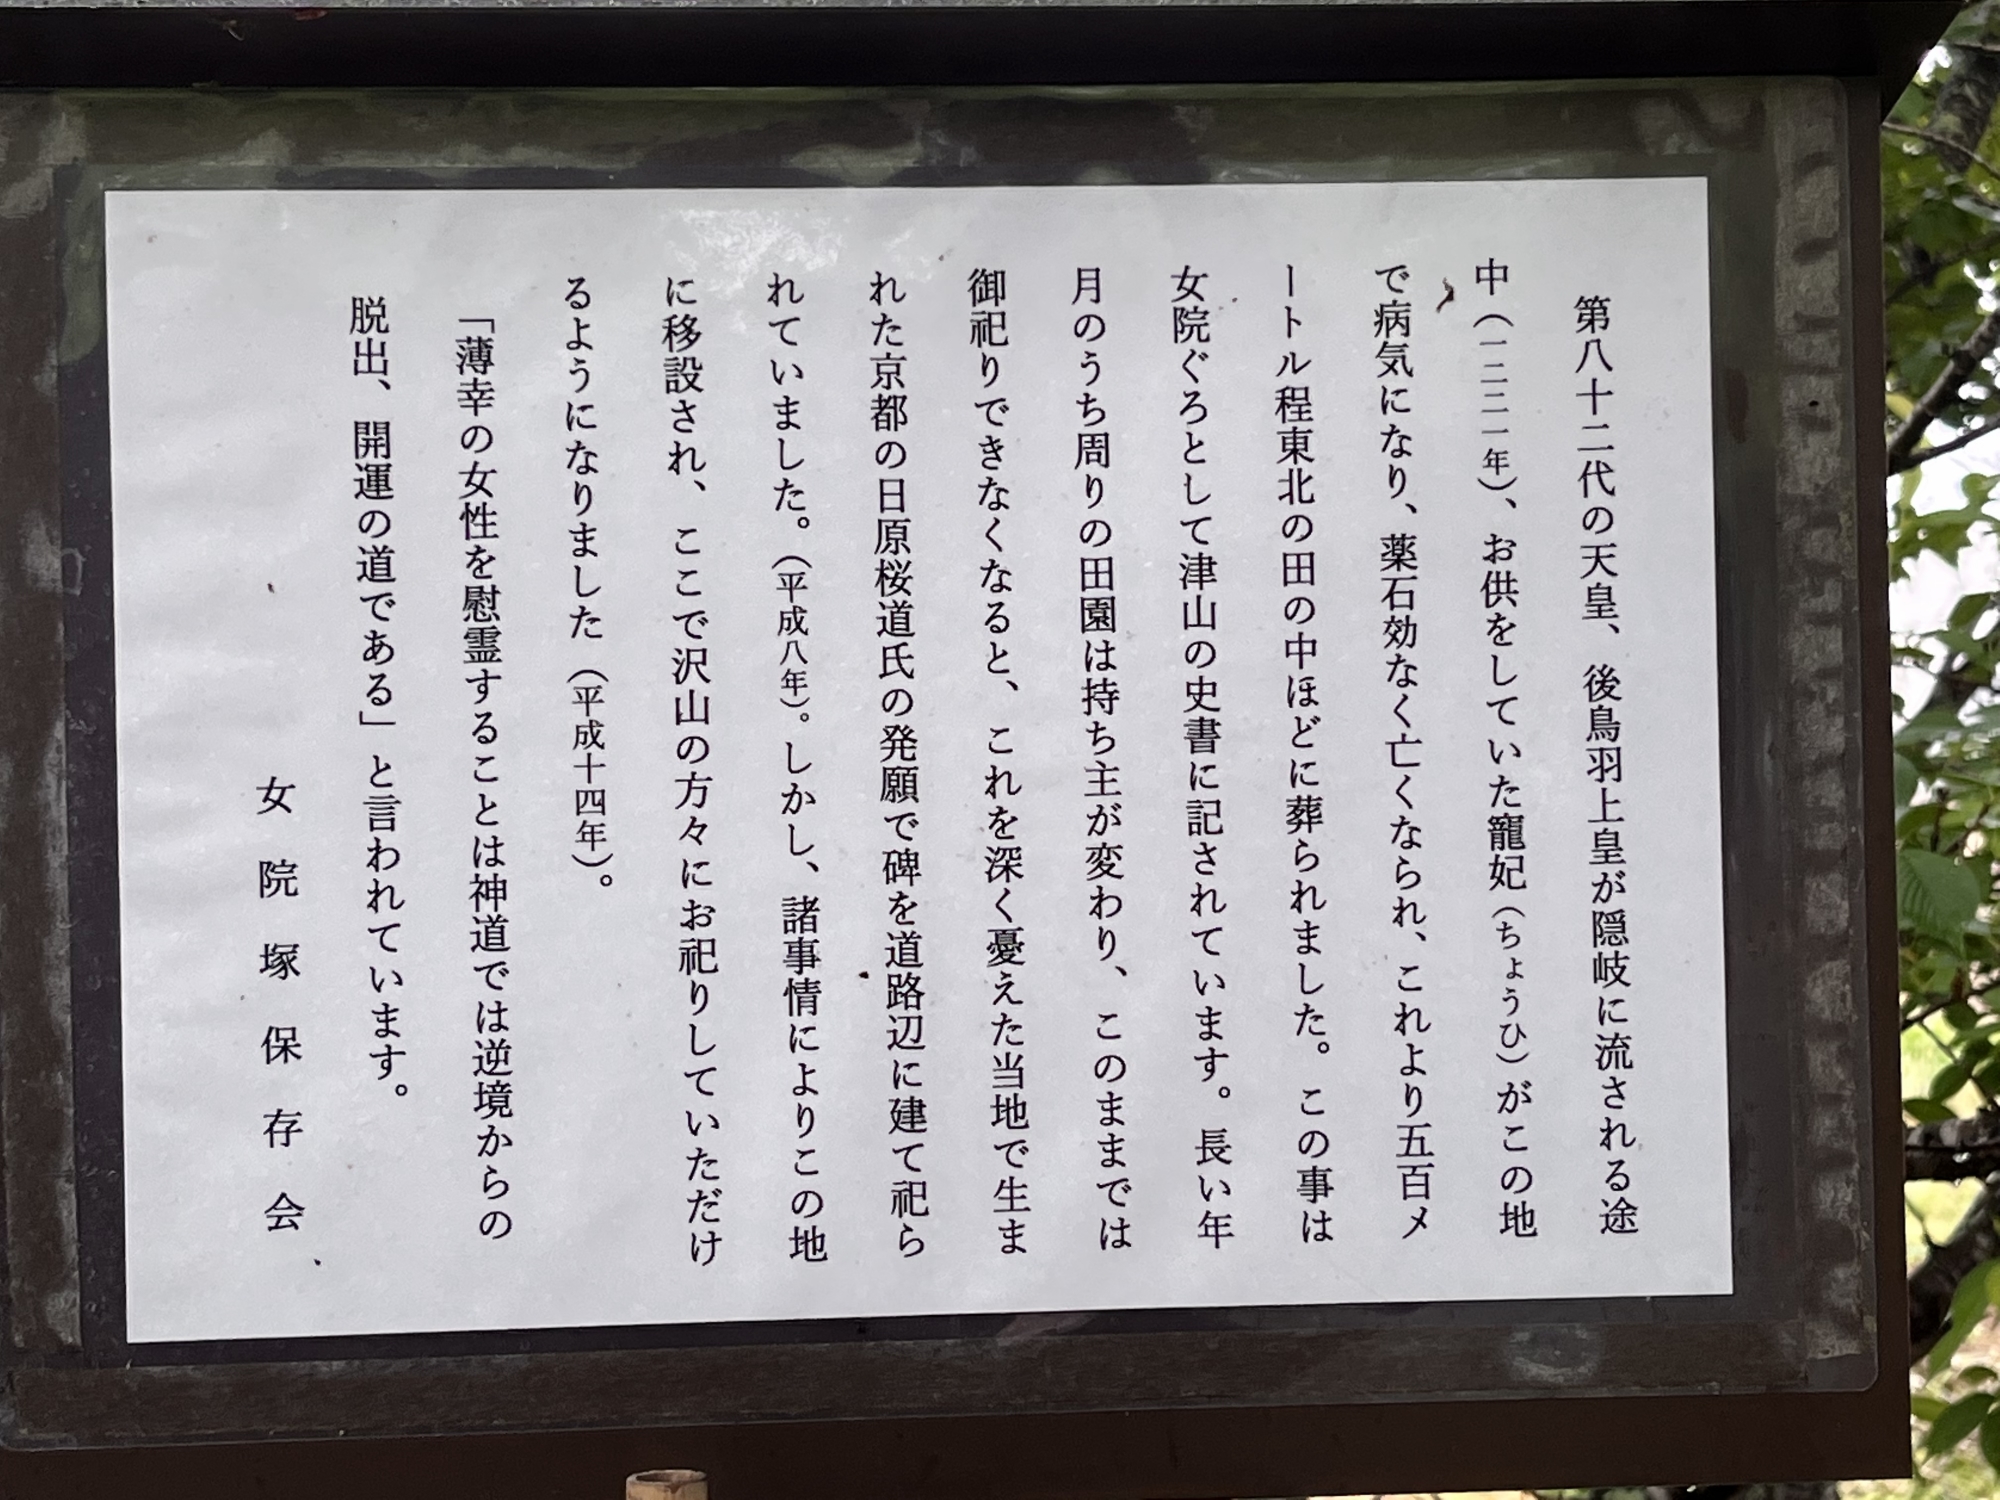 第八十二代の天皇、後鳥羽上皇が隠岐に流される途
中(一二二一年)、お供をしていた寵妃(ちょうひ)がこの地
で病気になり、薬石効なく亡くなられ、これより五百メ
ートル程東北の田の中ほどに葬られました。この事は
女院ぐろとして津山の史書に記されています。長い年
月のうち周りの田園は持ち主が変わり、このままでは
御祀りできなくなると、これを深く憂えた当地で生ま
れた京都の日原桜道氏の発願で碑を道路辺に建て祀ら
れていました。(平成八年)。しかし、諸事情によりこの地
に移設され、ここで沢山の方々にお祀りしていただけ
るようになりました(平成十四年)。
「薄幸の女性を慰霊することは神道では逆境からの
脱出、開運の道である」と言われています。
女院塚保存会